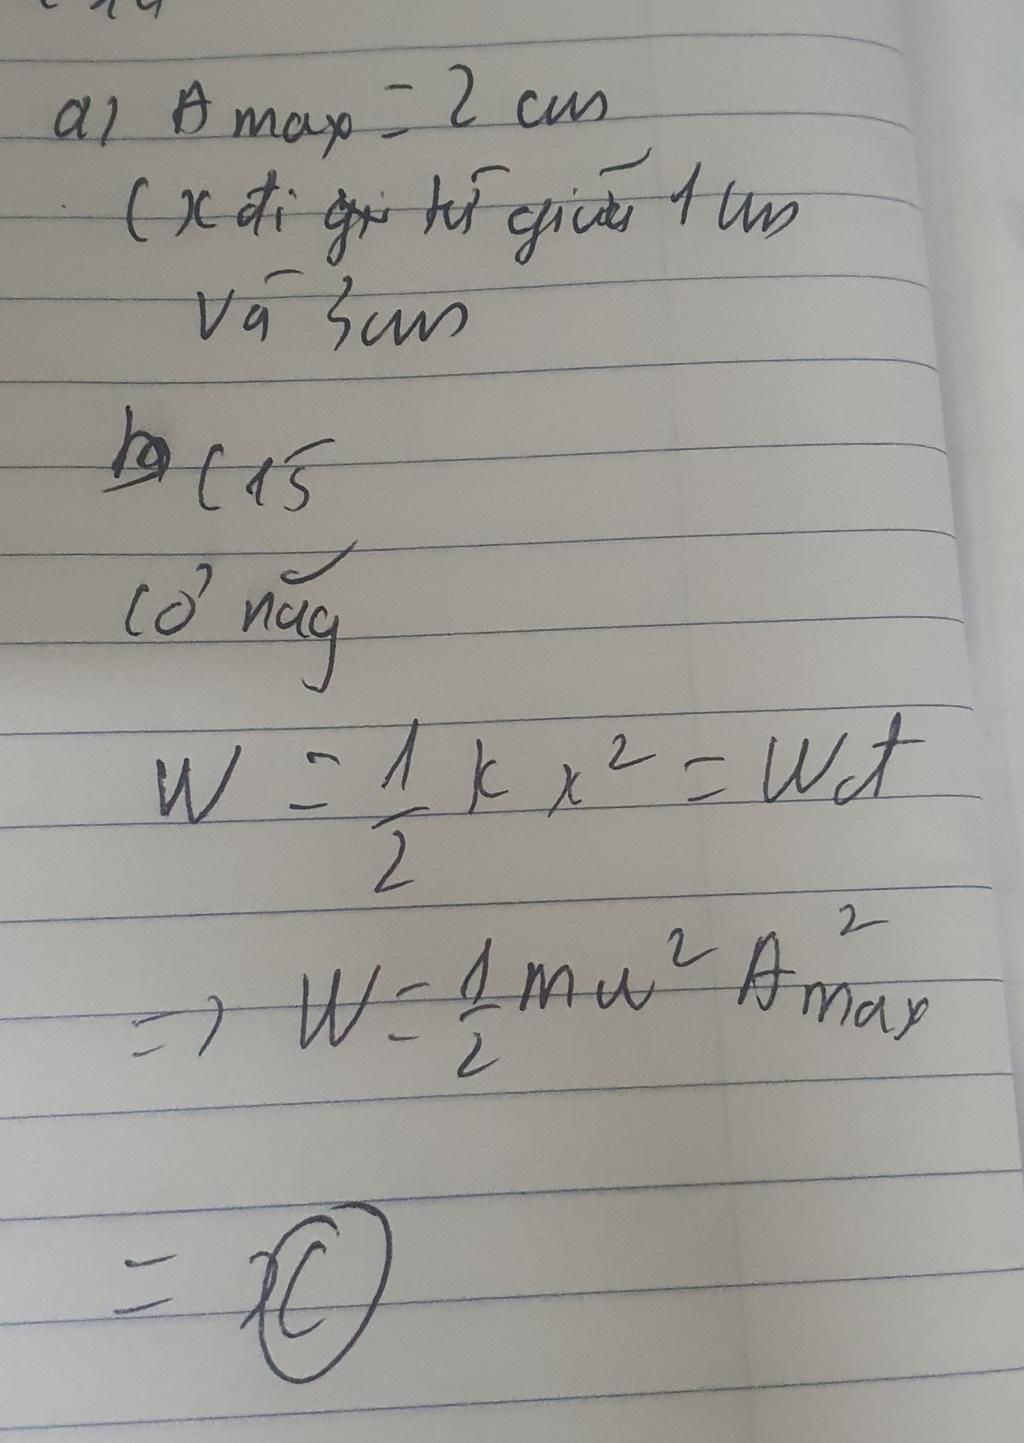 a) A max = 2 cm
(x đi từ giữa 1 cm
và 3 cm
C15
Cơ năg
W = 1/2 k x² = Wđ
=> W = 1/2 m w² A²max
= C